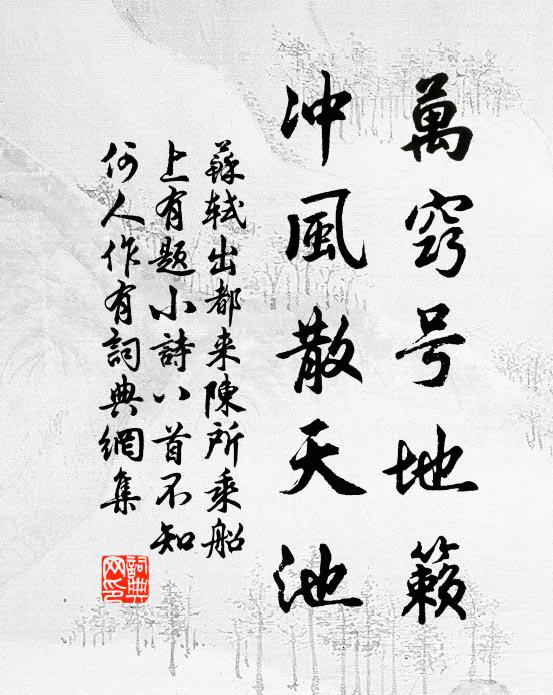 萬竅号地籟
冲風散天池
蘇軾出都来陳所乘船
上有题小詩八首不知
何人作有詞典網集
詞典网印